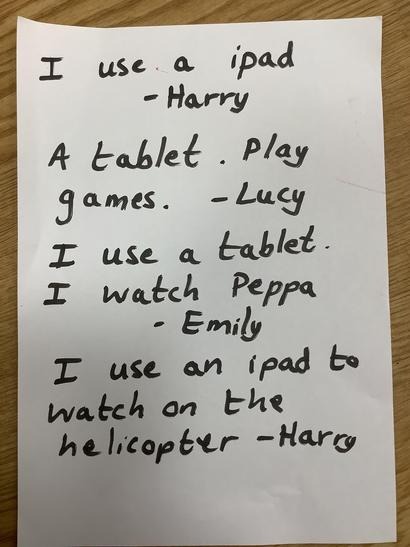 I use a ipad
- Harry
A tablet. Play
games. - Lucy
I use a tablet.
I watch Peppa
- Emily
I use an ipad to
watch on the
helicopter - Harry